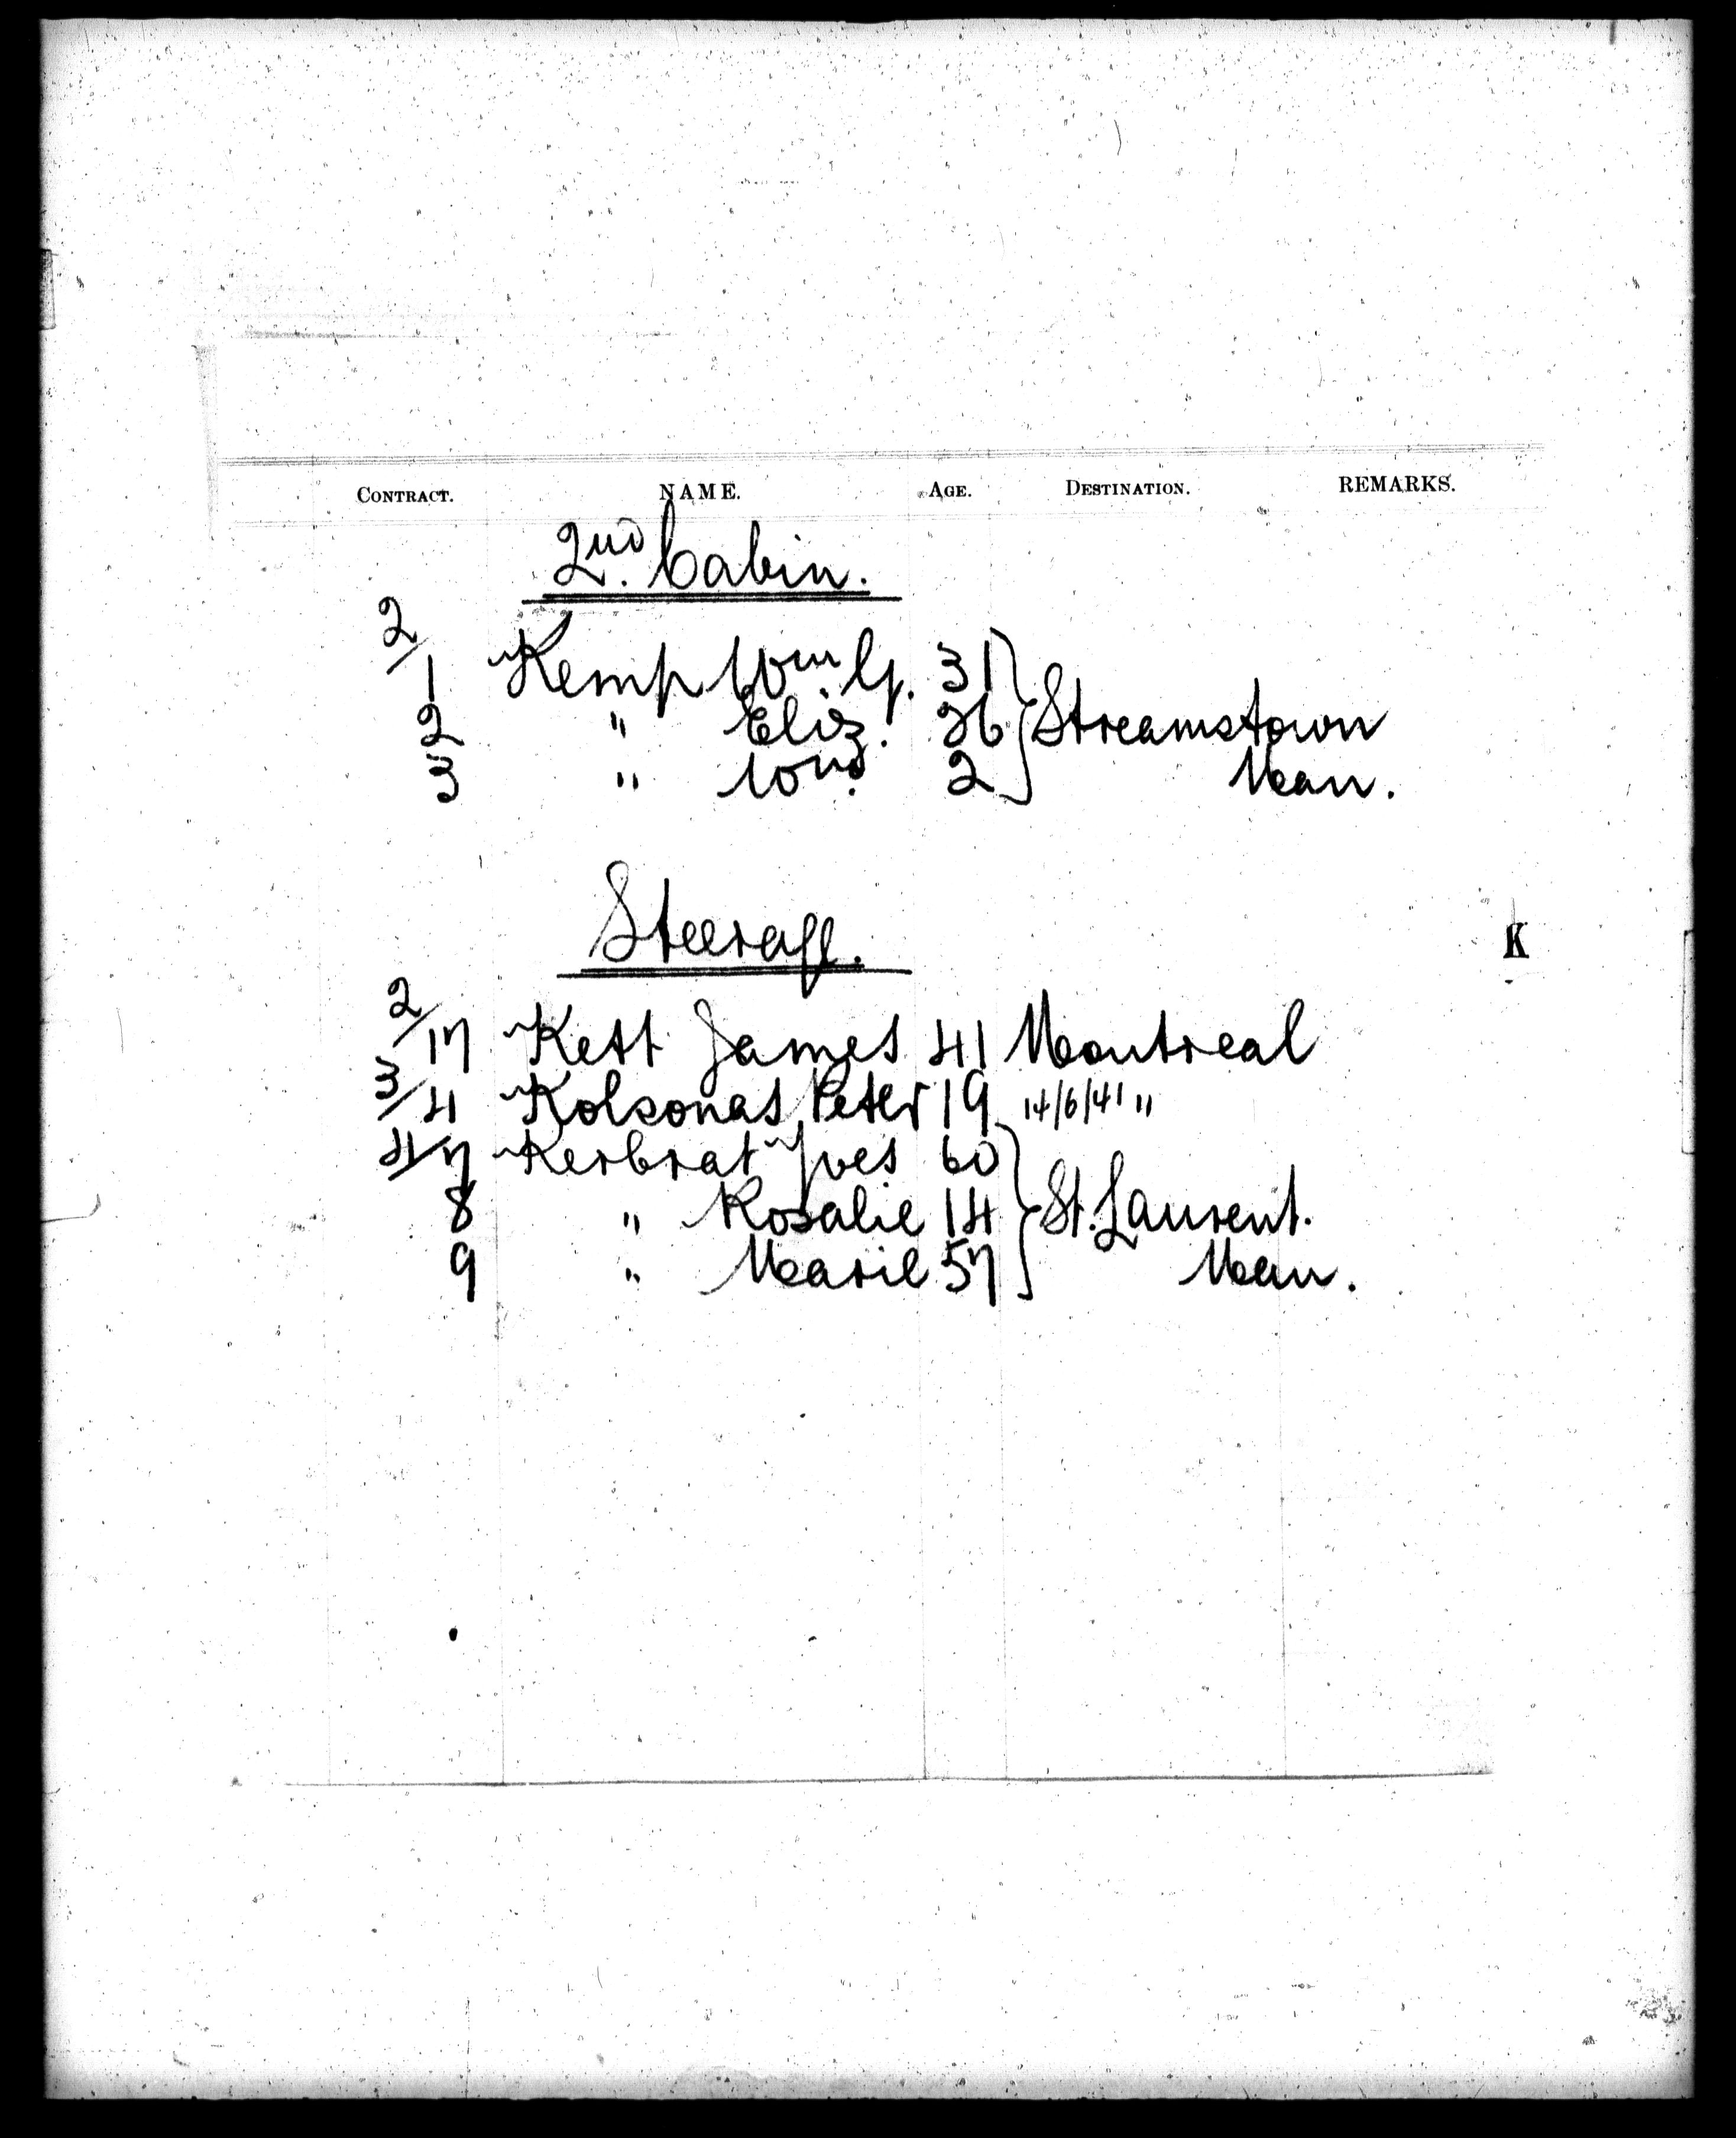 CONTRACT. NAME. AGE. DESTINATION. REMARKS.
2nd. Cabin.
2/1 Kemp Wm. G. 31
2 " Eliz. 26 Streamstown
3 " Wm. 2 Man.
Steerage.
K
2/17 Kett James 41 Montreal
3/4 Kolsonas Peter 19 14/6/41 "
4/7 Kerbrat Yves 60
8 " Rosalie 14 St. Laurent.
9 " Marie 57 Man.